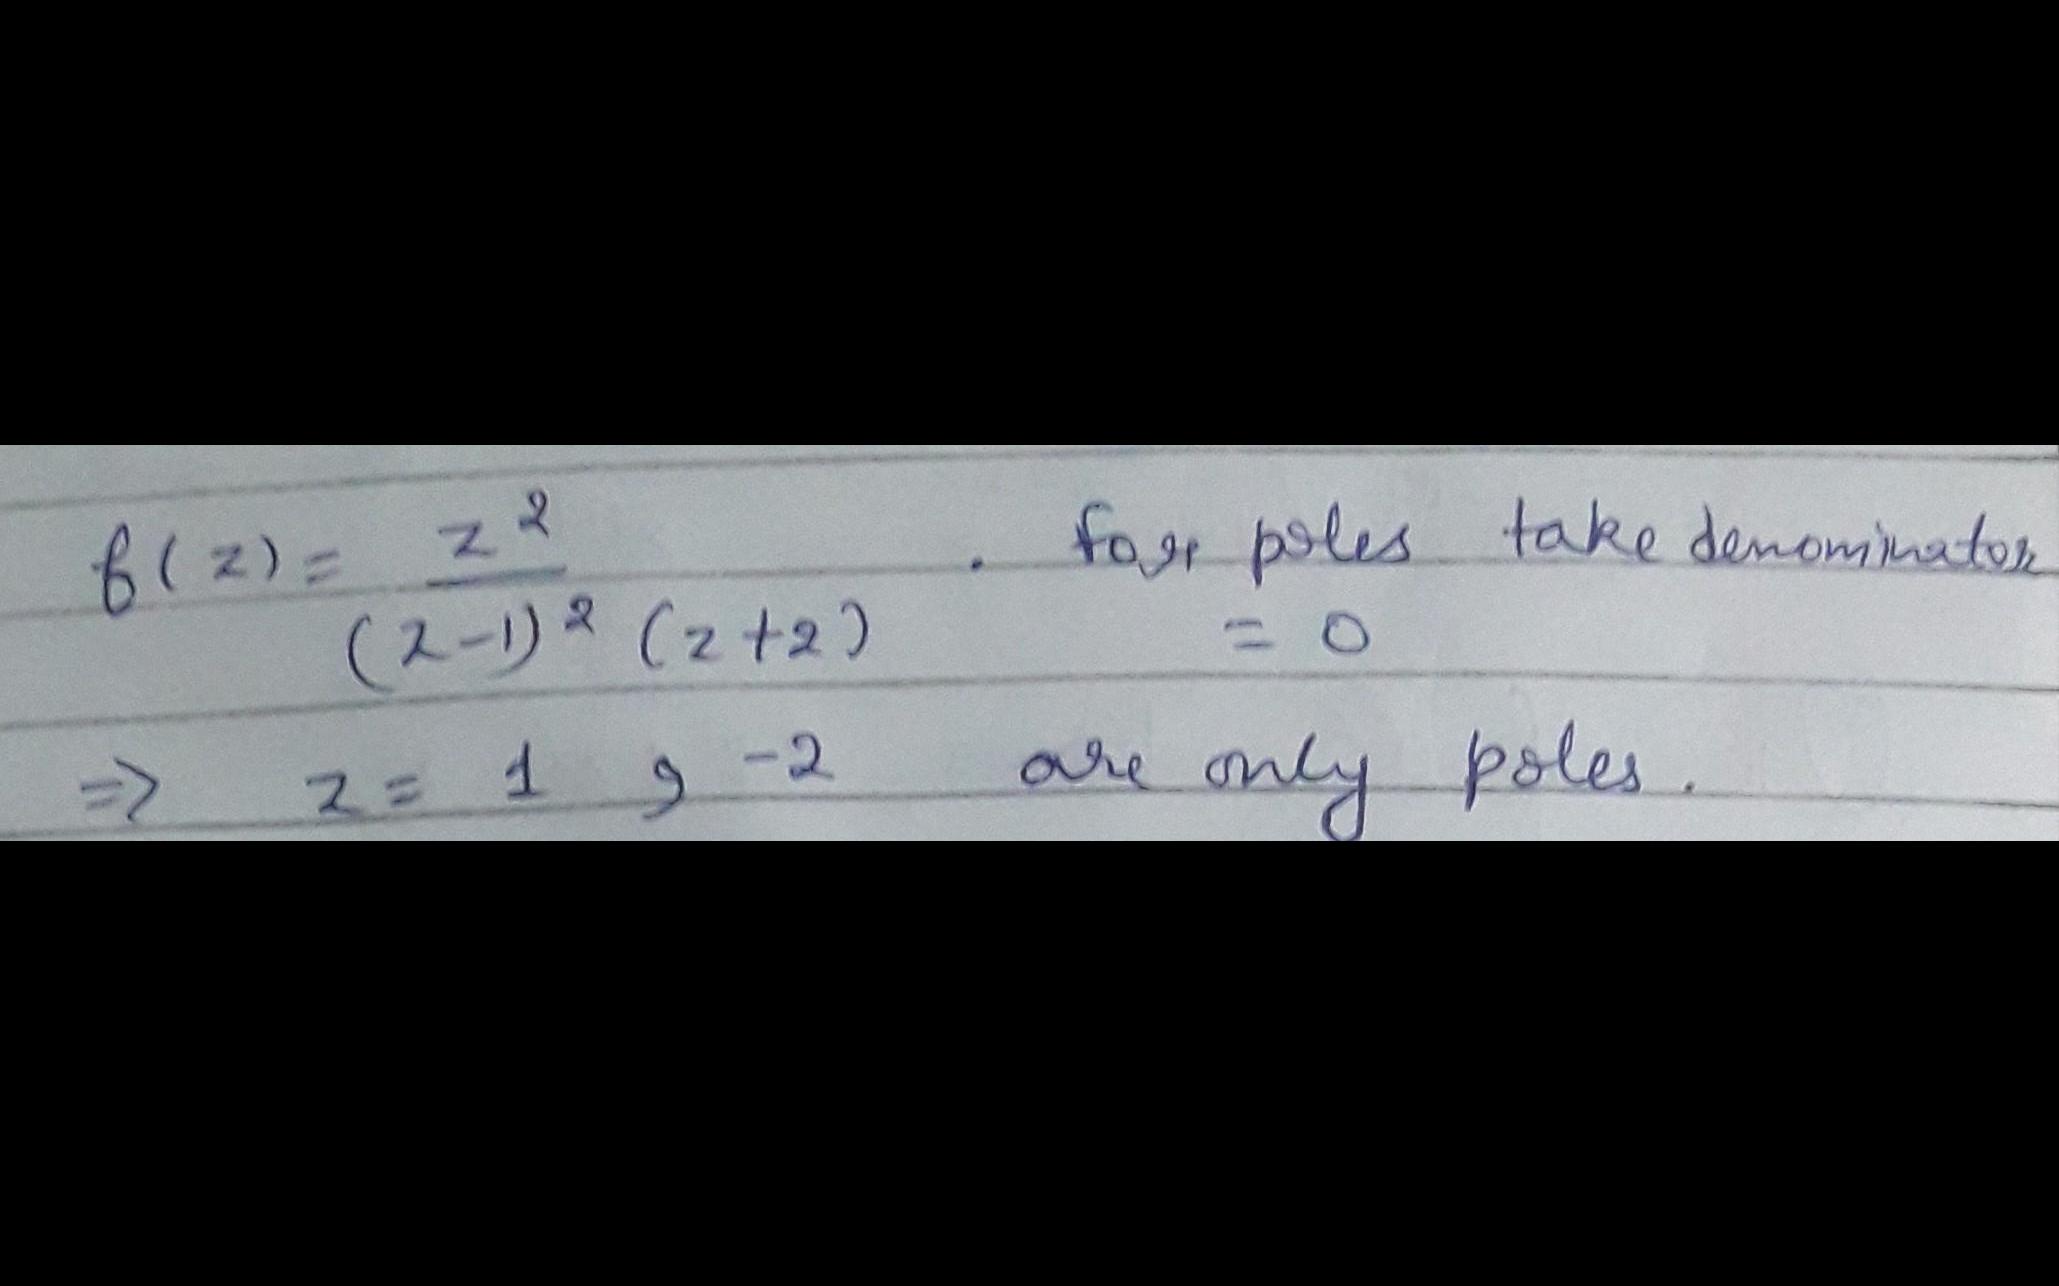 f(z) = z² / (z-1)² (z+2) . for poles take denominator
= 0
=> z = 1 , -2 are only poles.